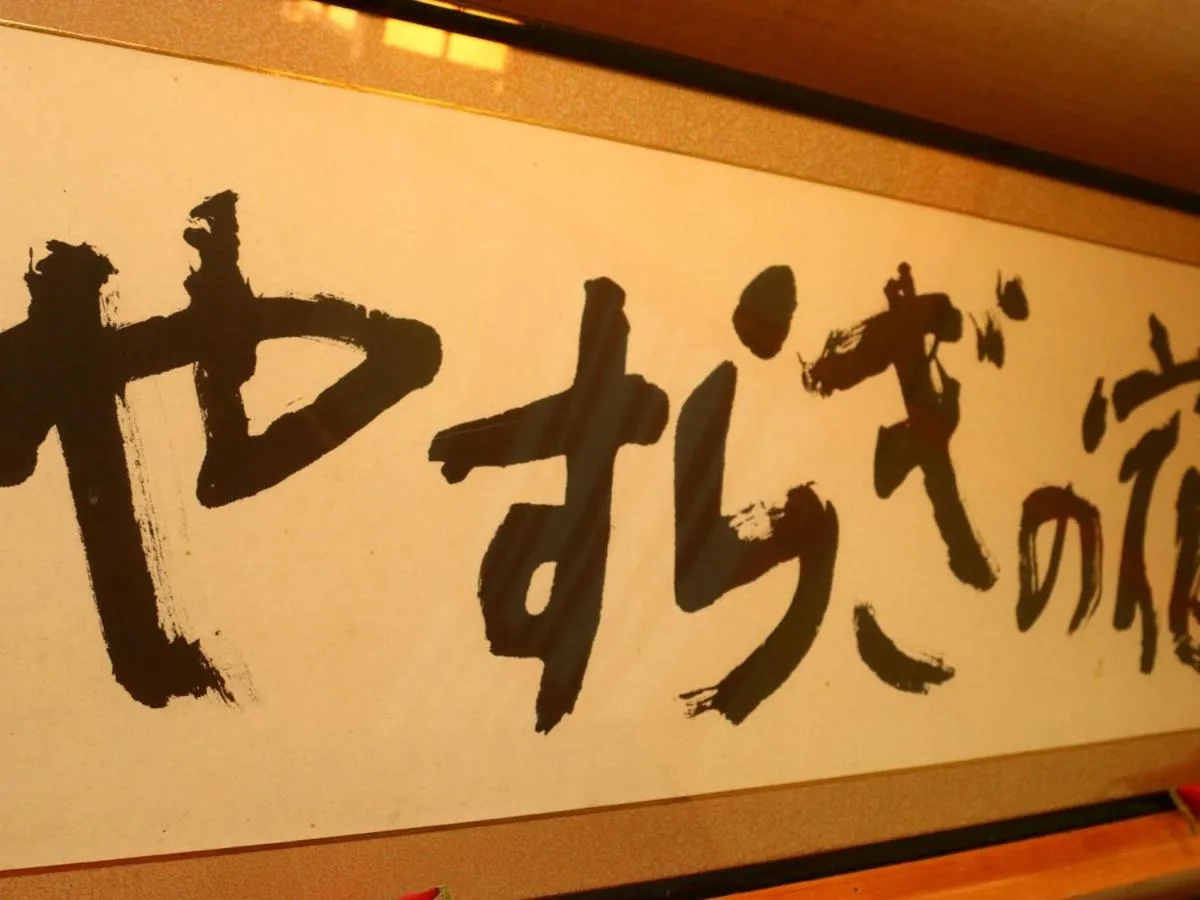 やすらぎの宿